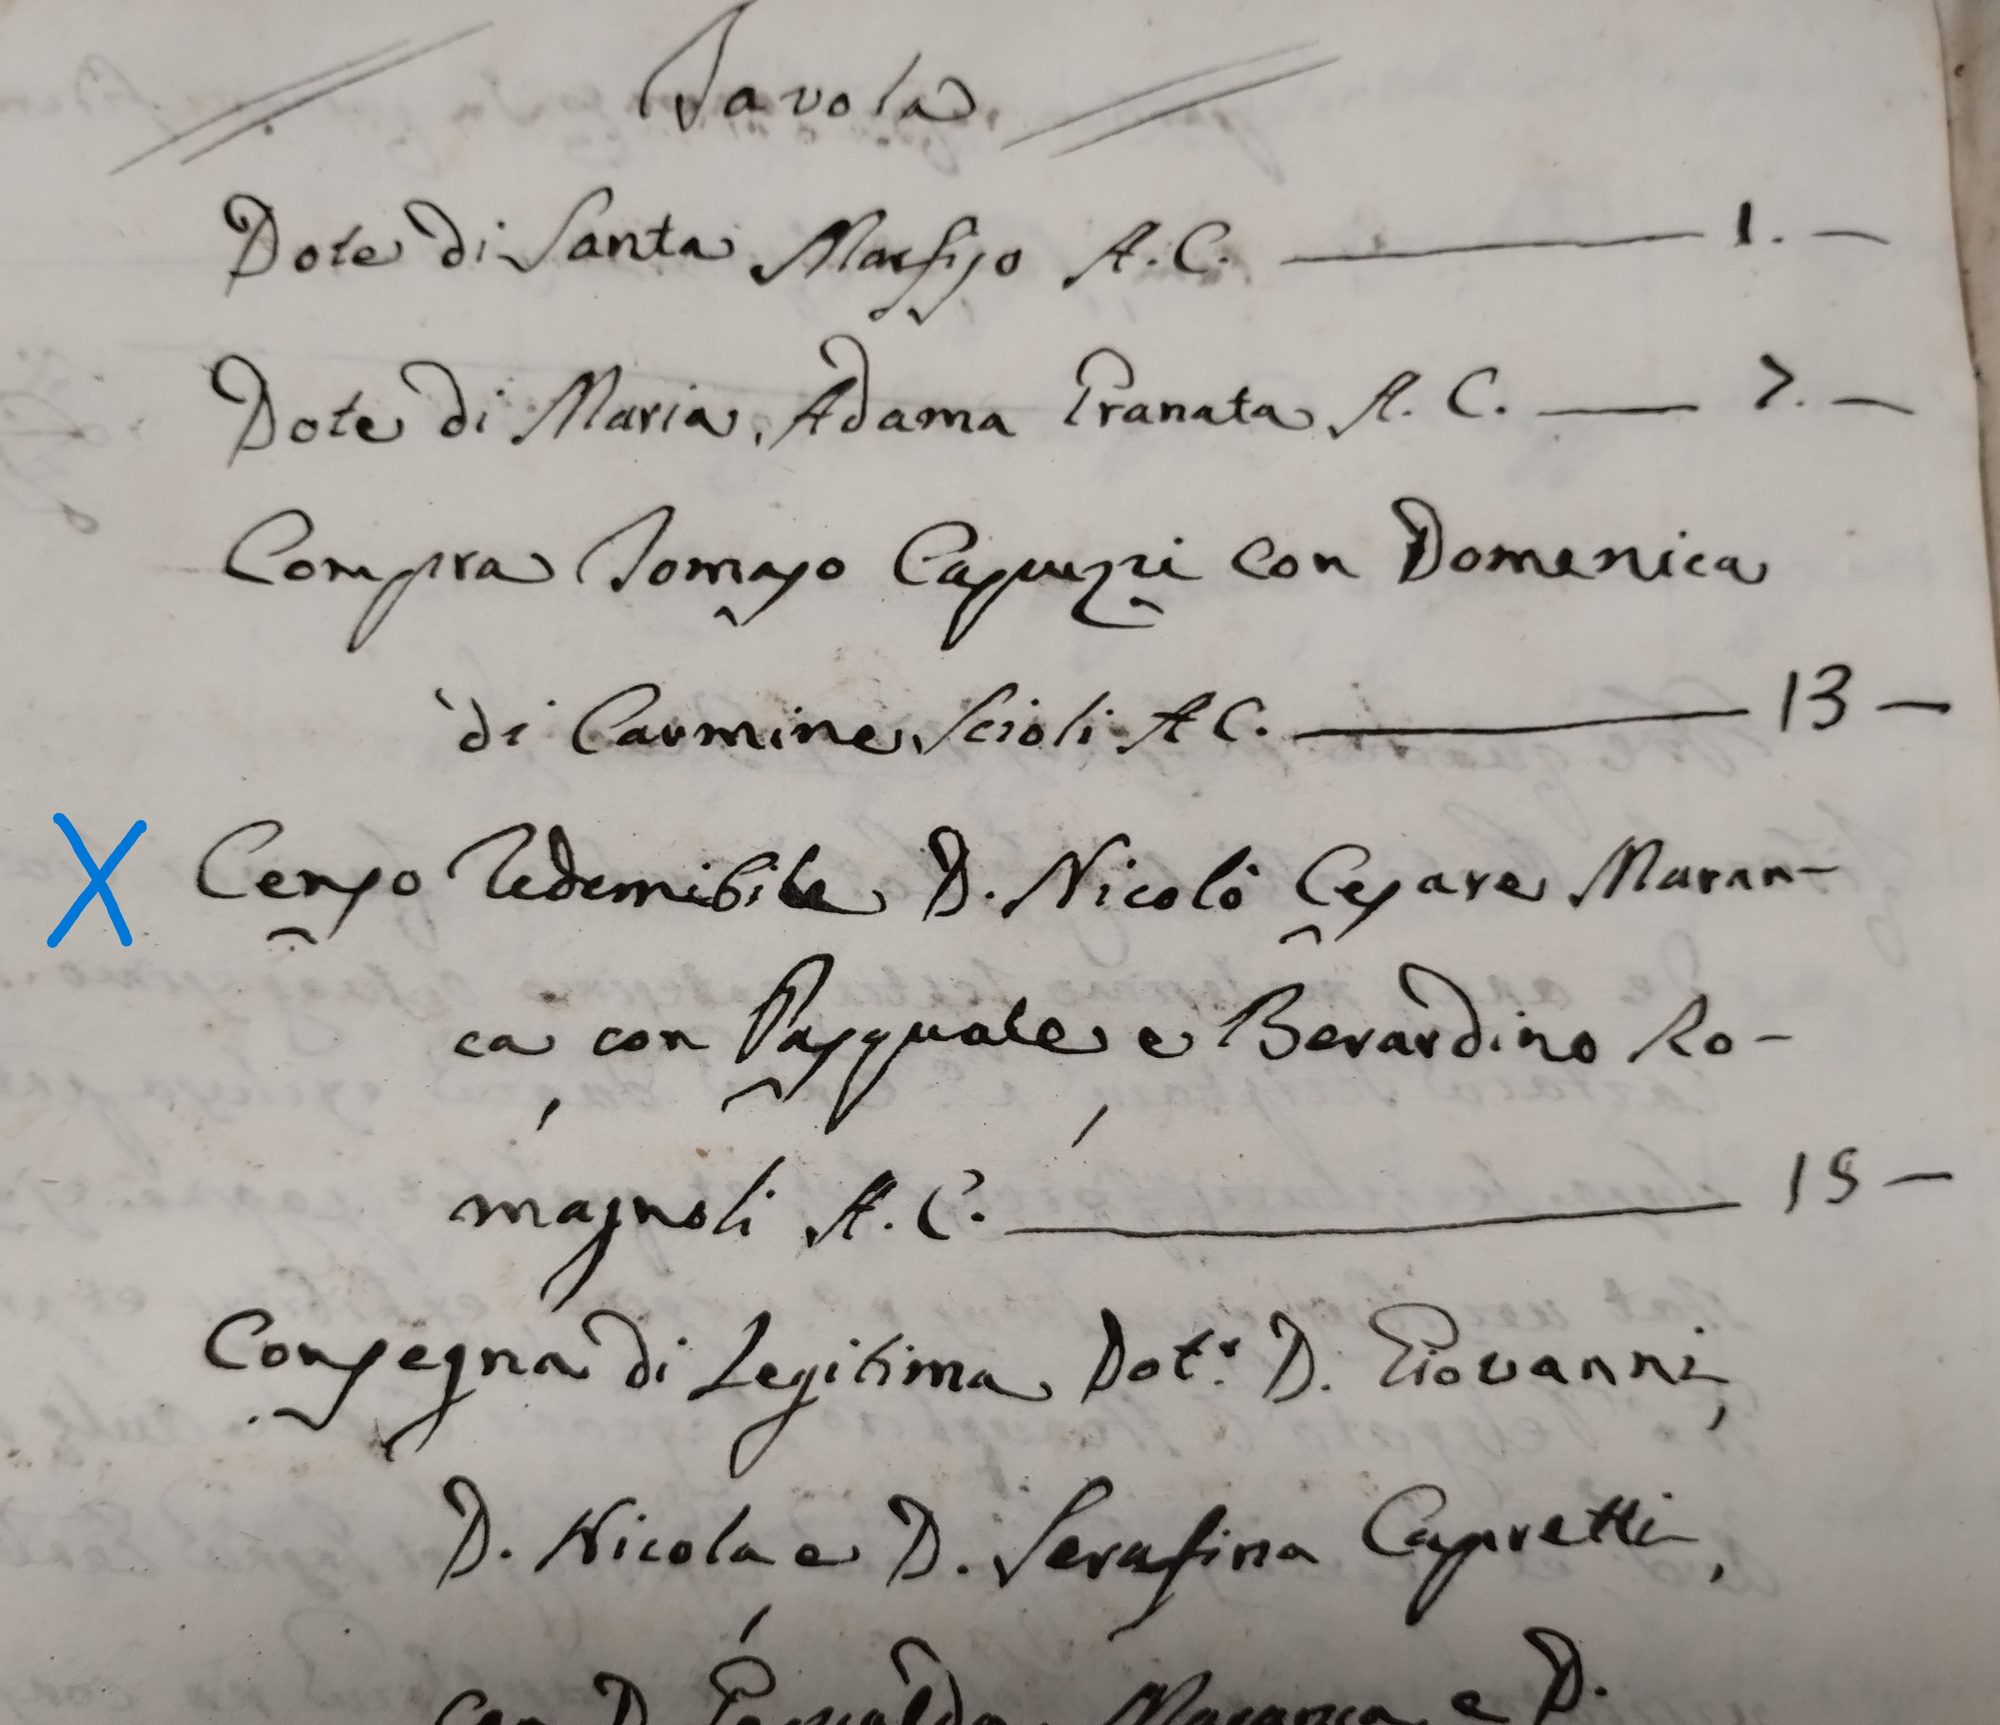 Tavola
Dote di Santa Marfiso A. C. — 1. —
Dote di Maria Adama Granata A. C. — 7. —
Compra Tomaso Capuzzi con Domenica
di Carmine Scioli A C. — 13 —
X Censo redemibile D. Nicolò Cesare Maran-
ca con Pasquale e Berardino Ro-
magnoli A. C. — 15 —
Consegna di Legitima Dot.r D. Giovanni,
D. Nicola e D. Serafina Capretti,
con D. Maranca e D.